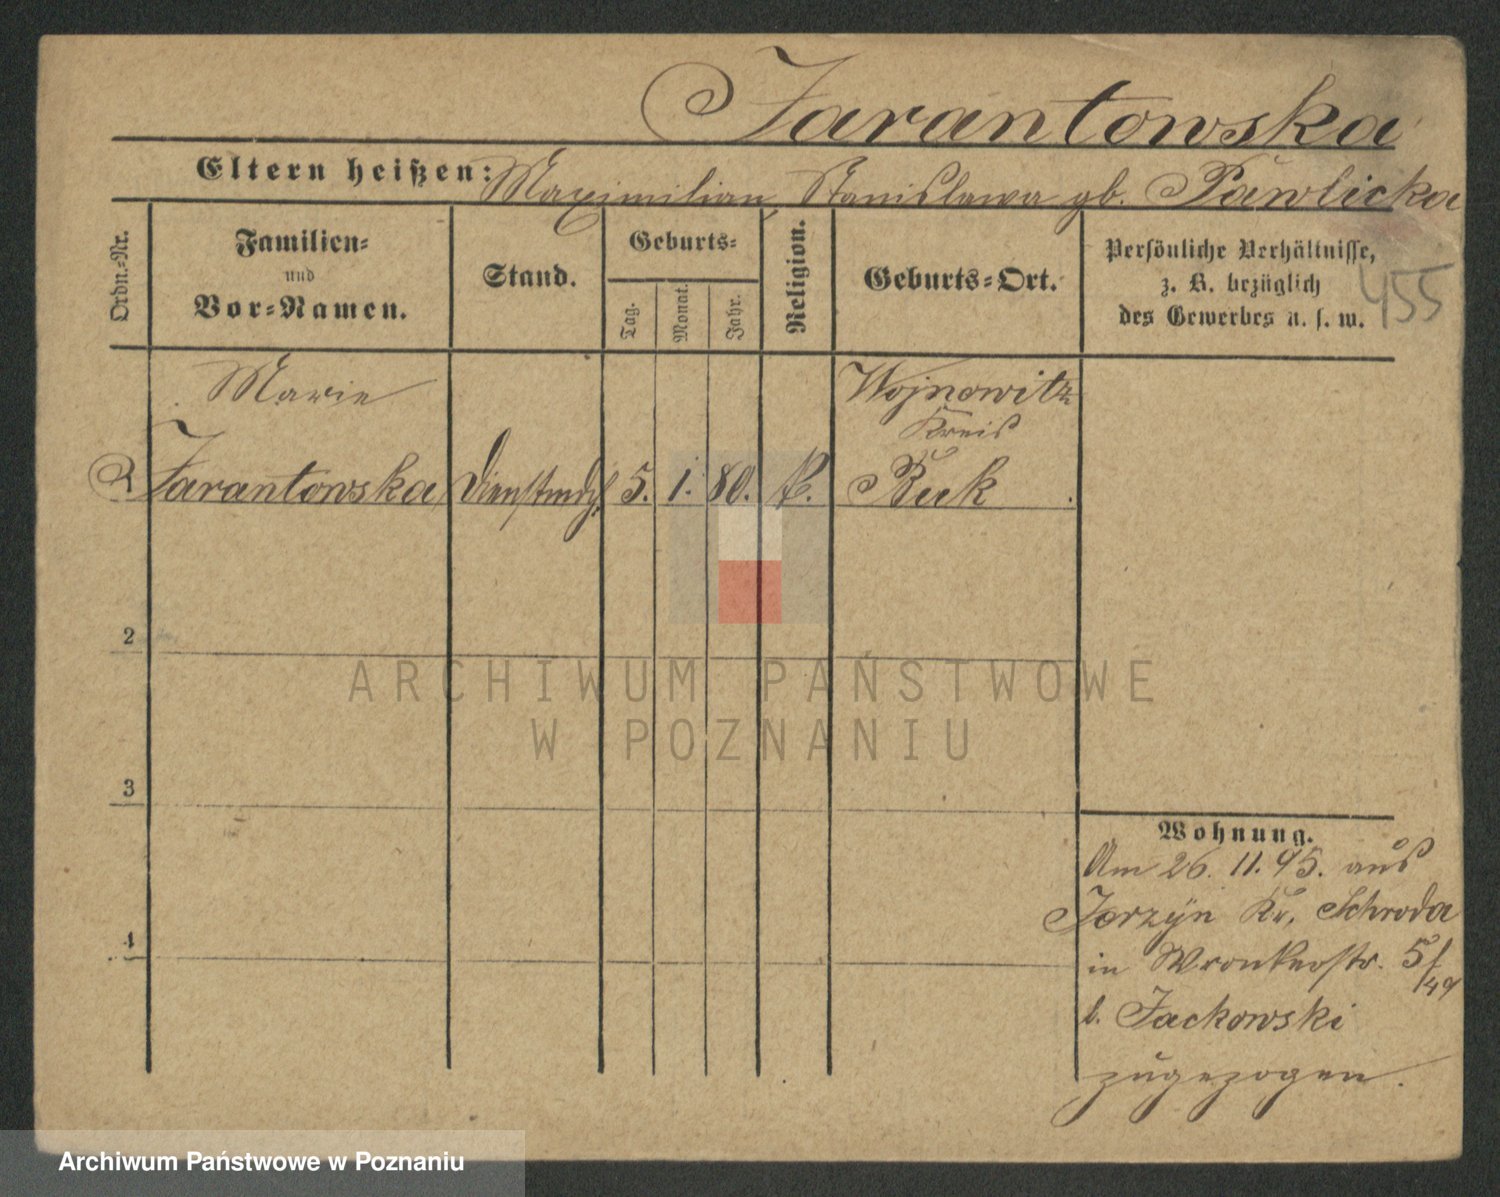 Jarantowska
Eltern heißen: Maximilian, Stanislawa gb. Pawlicka
Ordn.-Nr.
Familien-
und
Vor-Namen.
Stand.
Geburts-
Tag.
Monat.
Jahr.
Religion.
Geburts-Ort.
Persönliche Verhältnisse,
z. B. bezüglich
des Gewerbes u. s. w.
455
Marie
Jarantowska
Dienstmdch.
5. 1. 80. K.
Wojnowitz
Kreis
Buk
2
3
4
ARCHIWUM PAŃSTWOWE
W POZNANIU
Wohnung.
Am 26. 11. 95. aus
Jerzyn Kr. Schroda
in Wronkerstr. 5/
b. Jackowski
zugezogen.
Archiwum Państwowe w Poznaniu